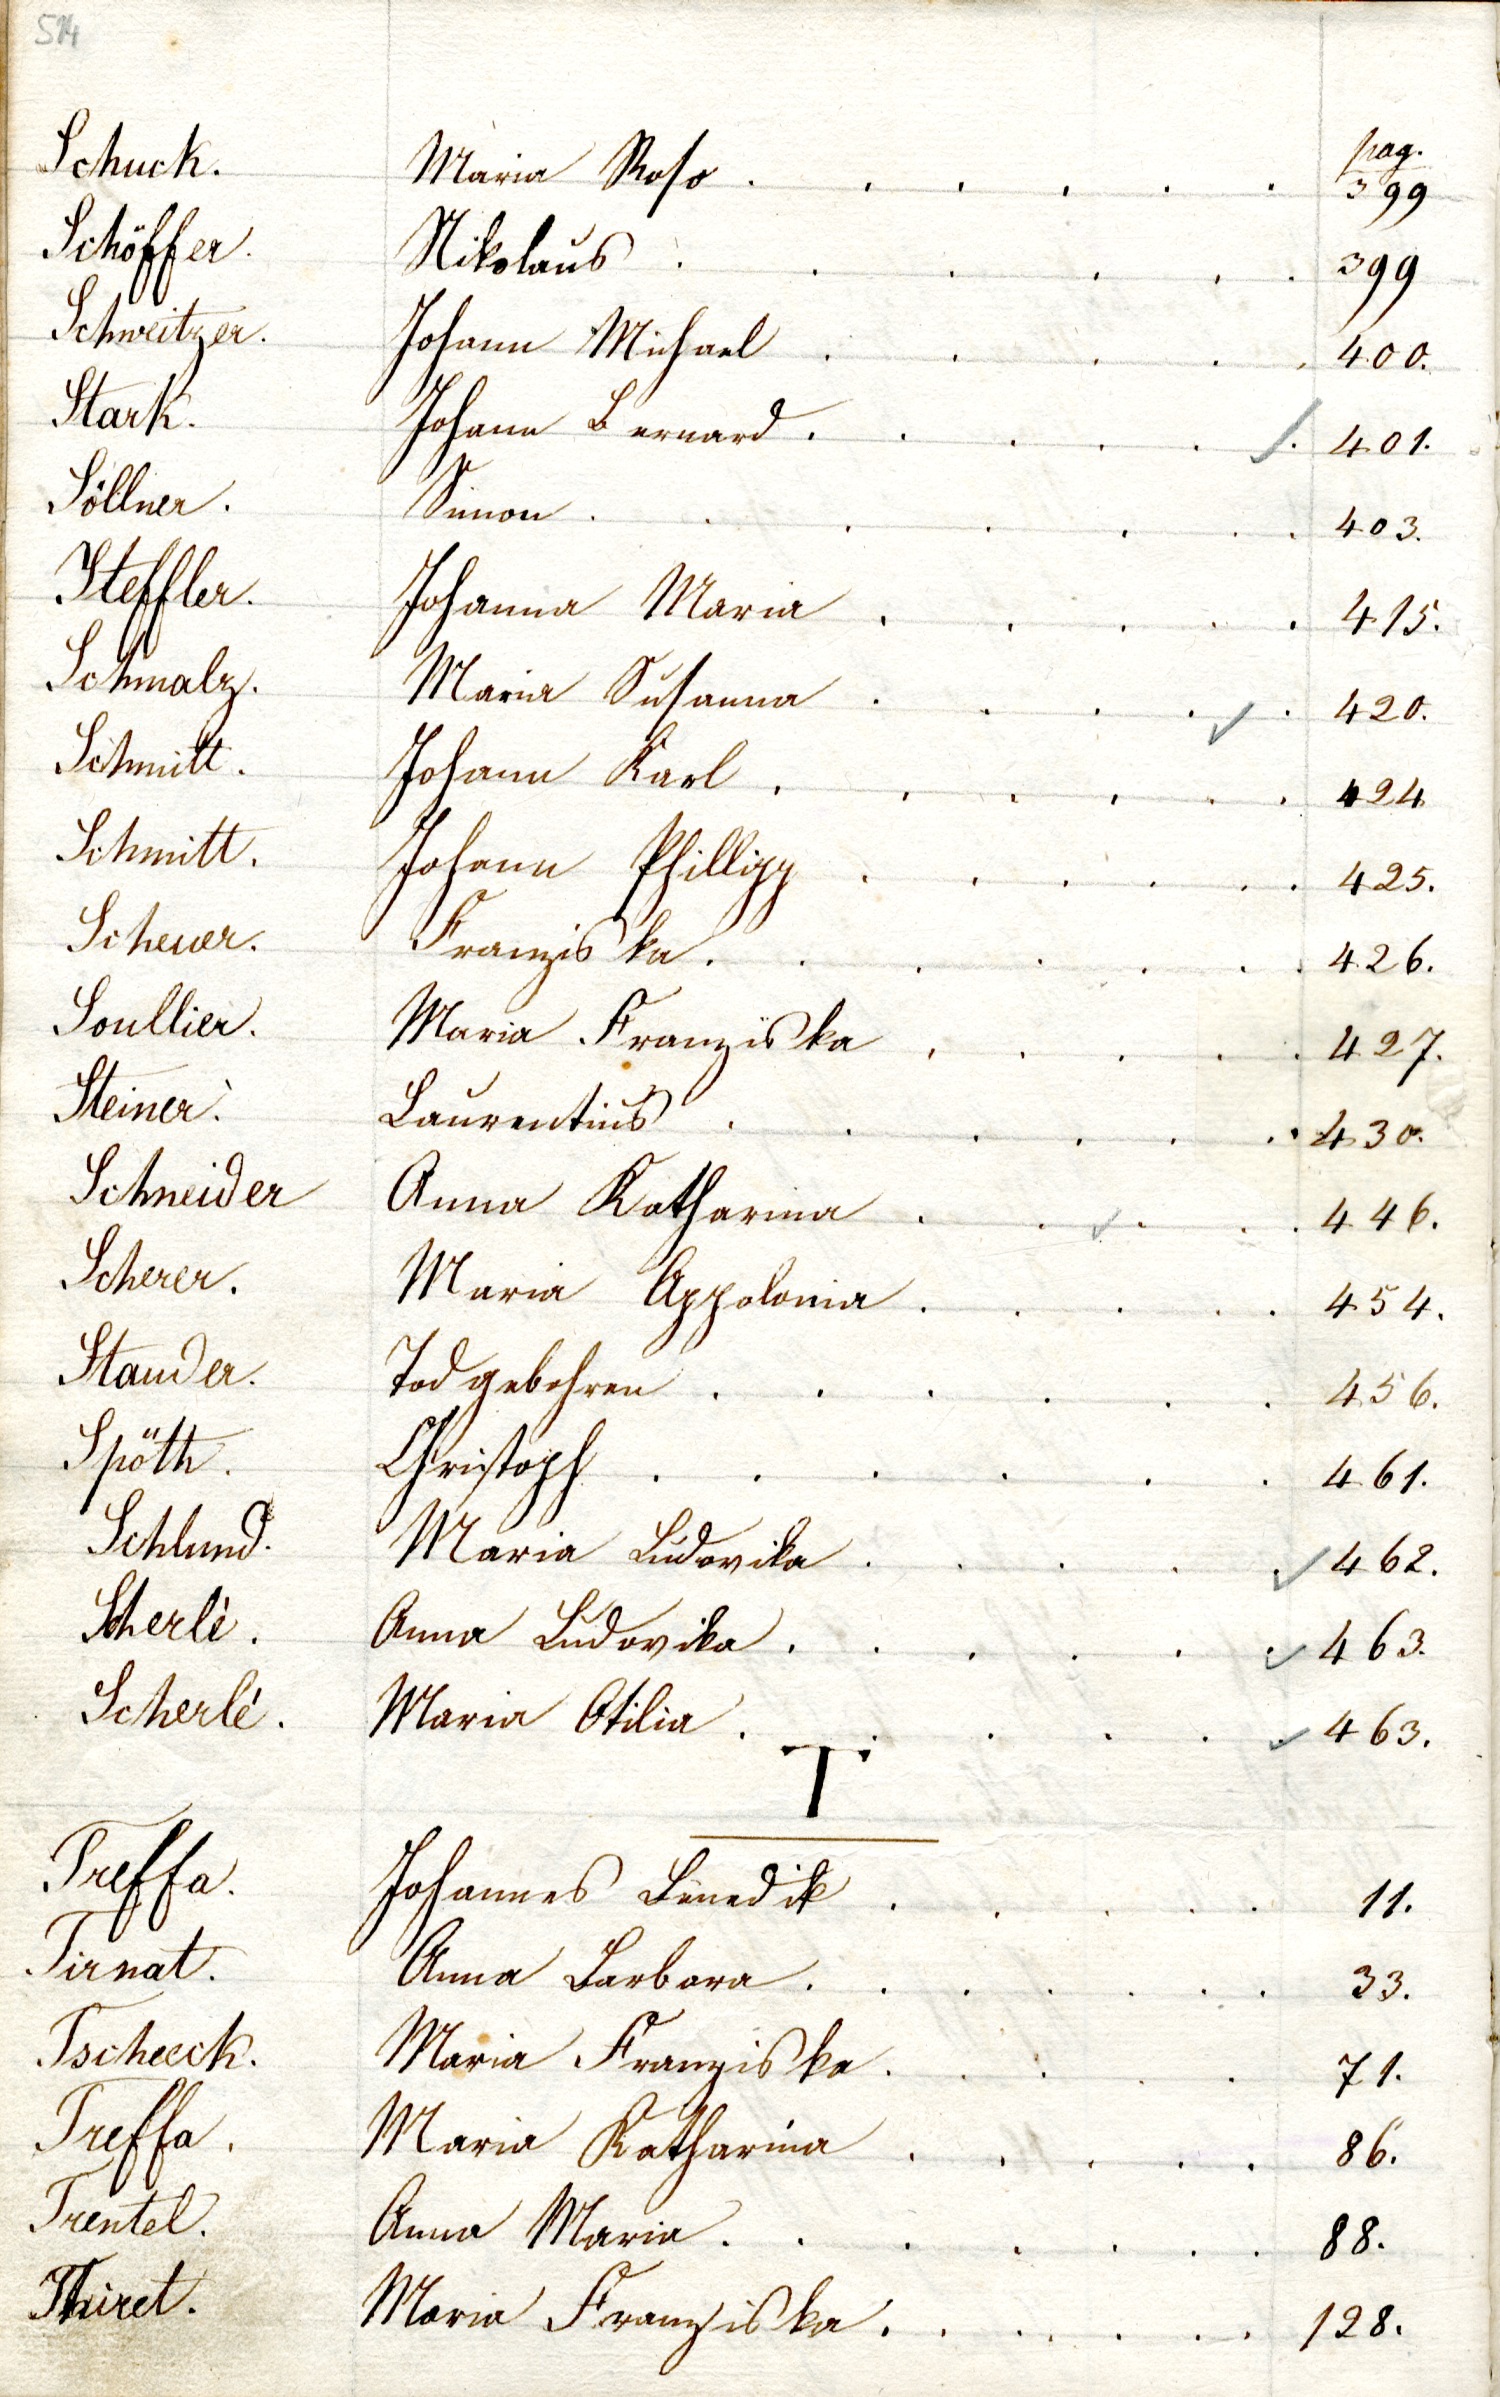 514
pag.
Schuck. Maria Rosa . . . . . . 399
Schöffer. Nikolaus . . . . . . 399
Schweitzer. Johann Michael . . . . . 400.
Stark. Johann Bernard . . . . . . 401.
Söllner. Simon . . . . . . . 403.
Steffler. Johanna Maria . . . . . 415.
Schmalz. Maria Susanna . . . . . 420.
Schmitt. Johann Karl . . . . . . 424
Schmitt. Johann Phillipp . . . . . . 425.
Scheuer. Franziska . . . . . . . 426.
Soullier. Maria Franziska . . . . . 427.
Steiner. Laurentius . . . . . . 430.
Schneider Anna Katharina . . . . . 446.
Scherer. Maria Appolonia . . . . . 454.
Stauder. Todgebohren . . . . . . 456.
Späth. Christoph . . . . . . 461.
Schlund. Maria Ludovika . . . . . 462.
Scherlè. Anna Ludovika . . . . . . 463.
Scherlé. Maria Otilia . . . . . . 463.
T
Treffa. Johannes Benedik . . . . . 11.
Tirnat. Anna Barbara . . . . . . 33.
Tscheeck. Maria Franziska . . . . . 71.
Treffa. Maria Katharina . . . . . 86.
Trentel. Anna Maria . . . . . . . 88.
Thiret. Maria Franziska . . . . . . 128.